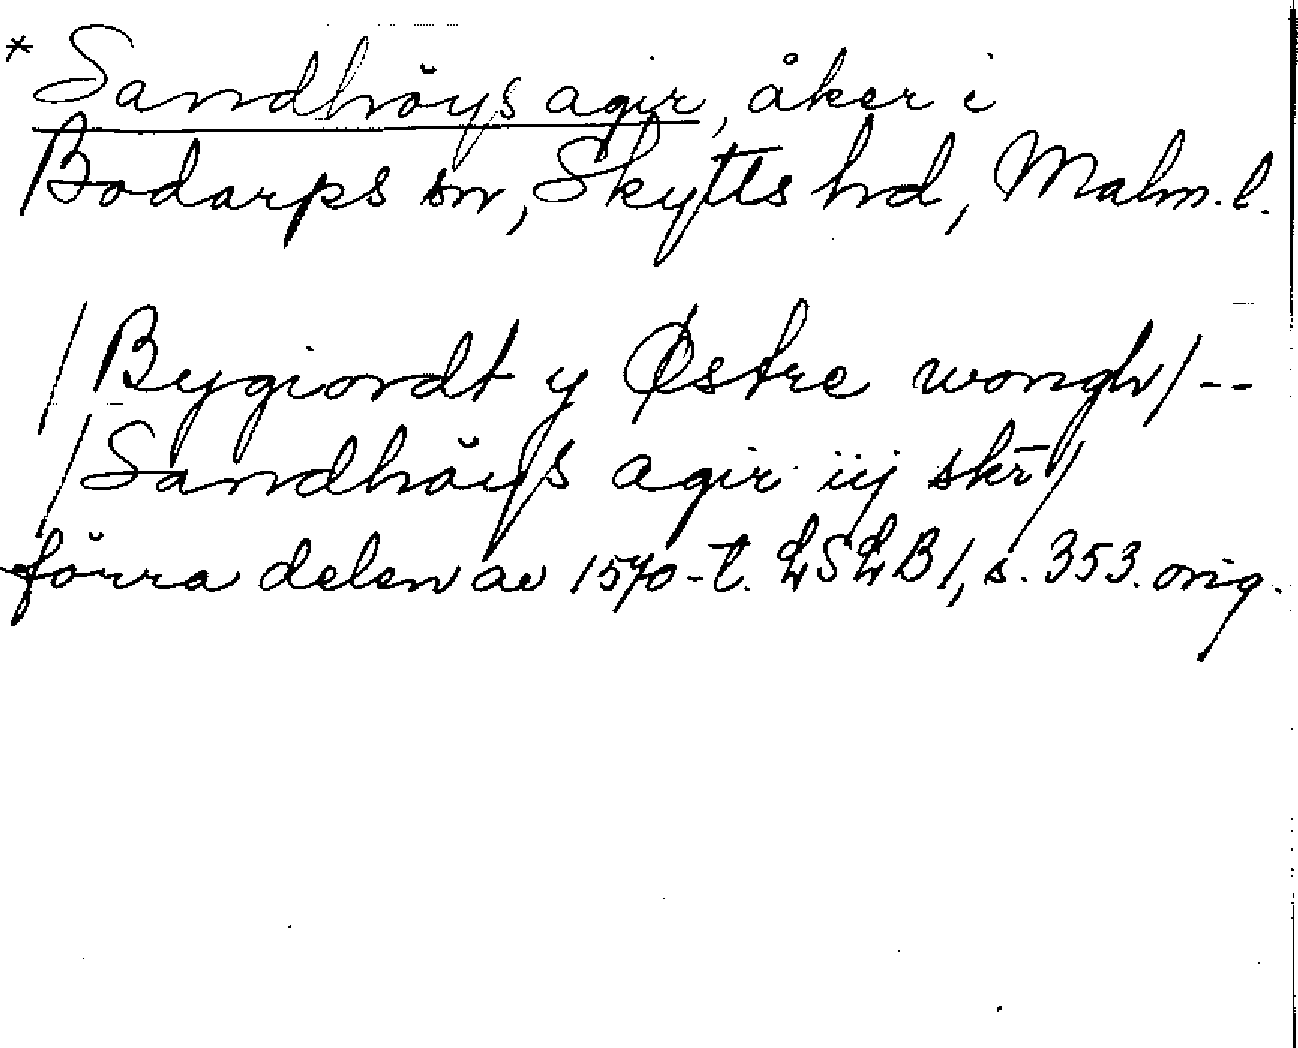 * Sandhöys agir, åker i
Bodarps sn, Skytts hd, Malm. l.
/Bygiordt y Østre wongh/--
/Sandhöys agir iij skr̄/
förra delen av 1570-t. LSLB1, s. 353. orig.